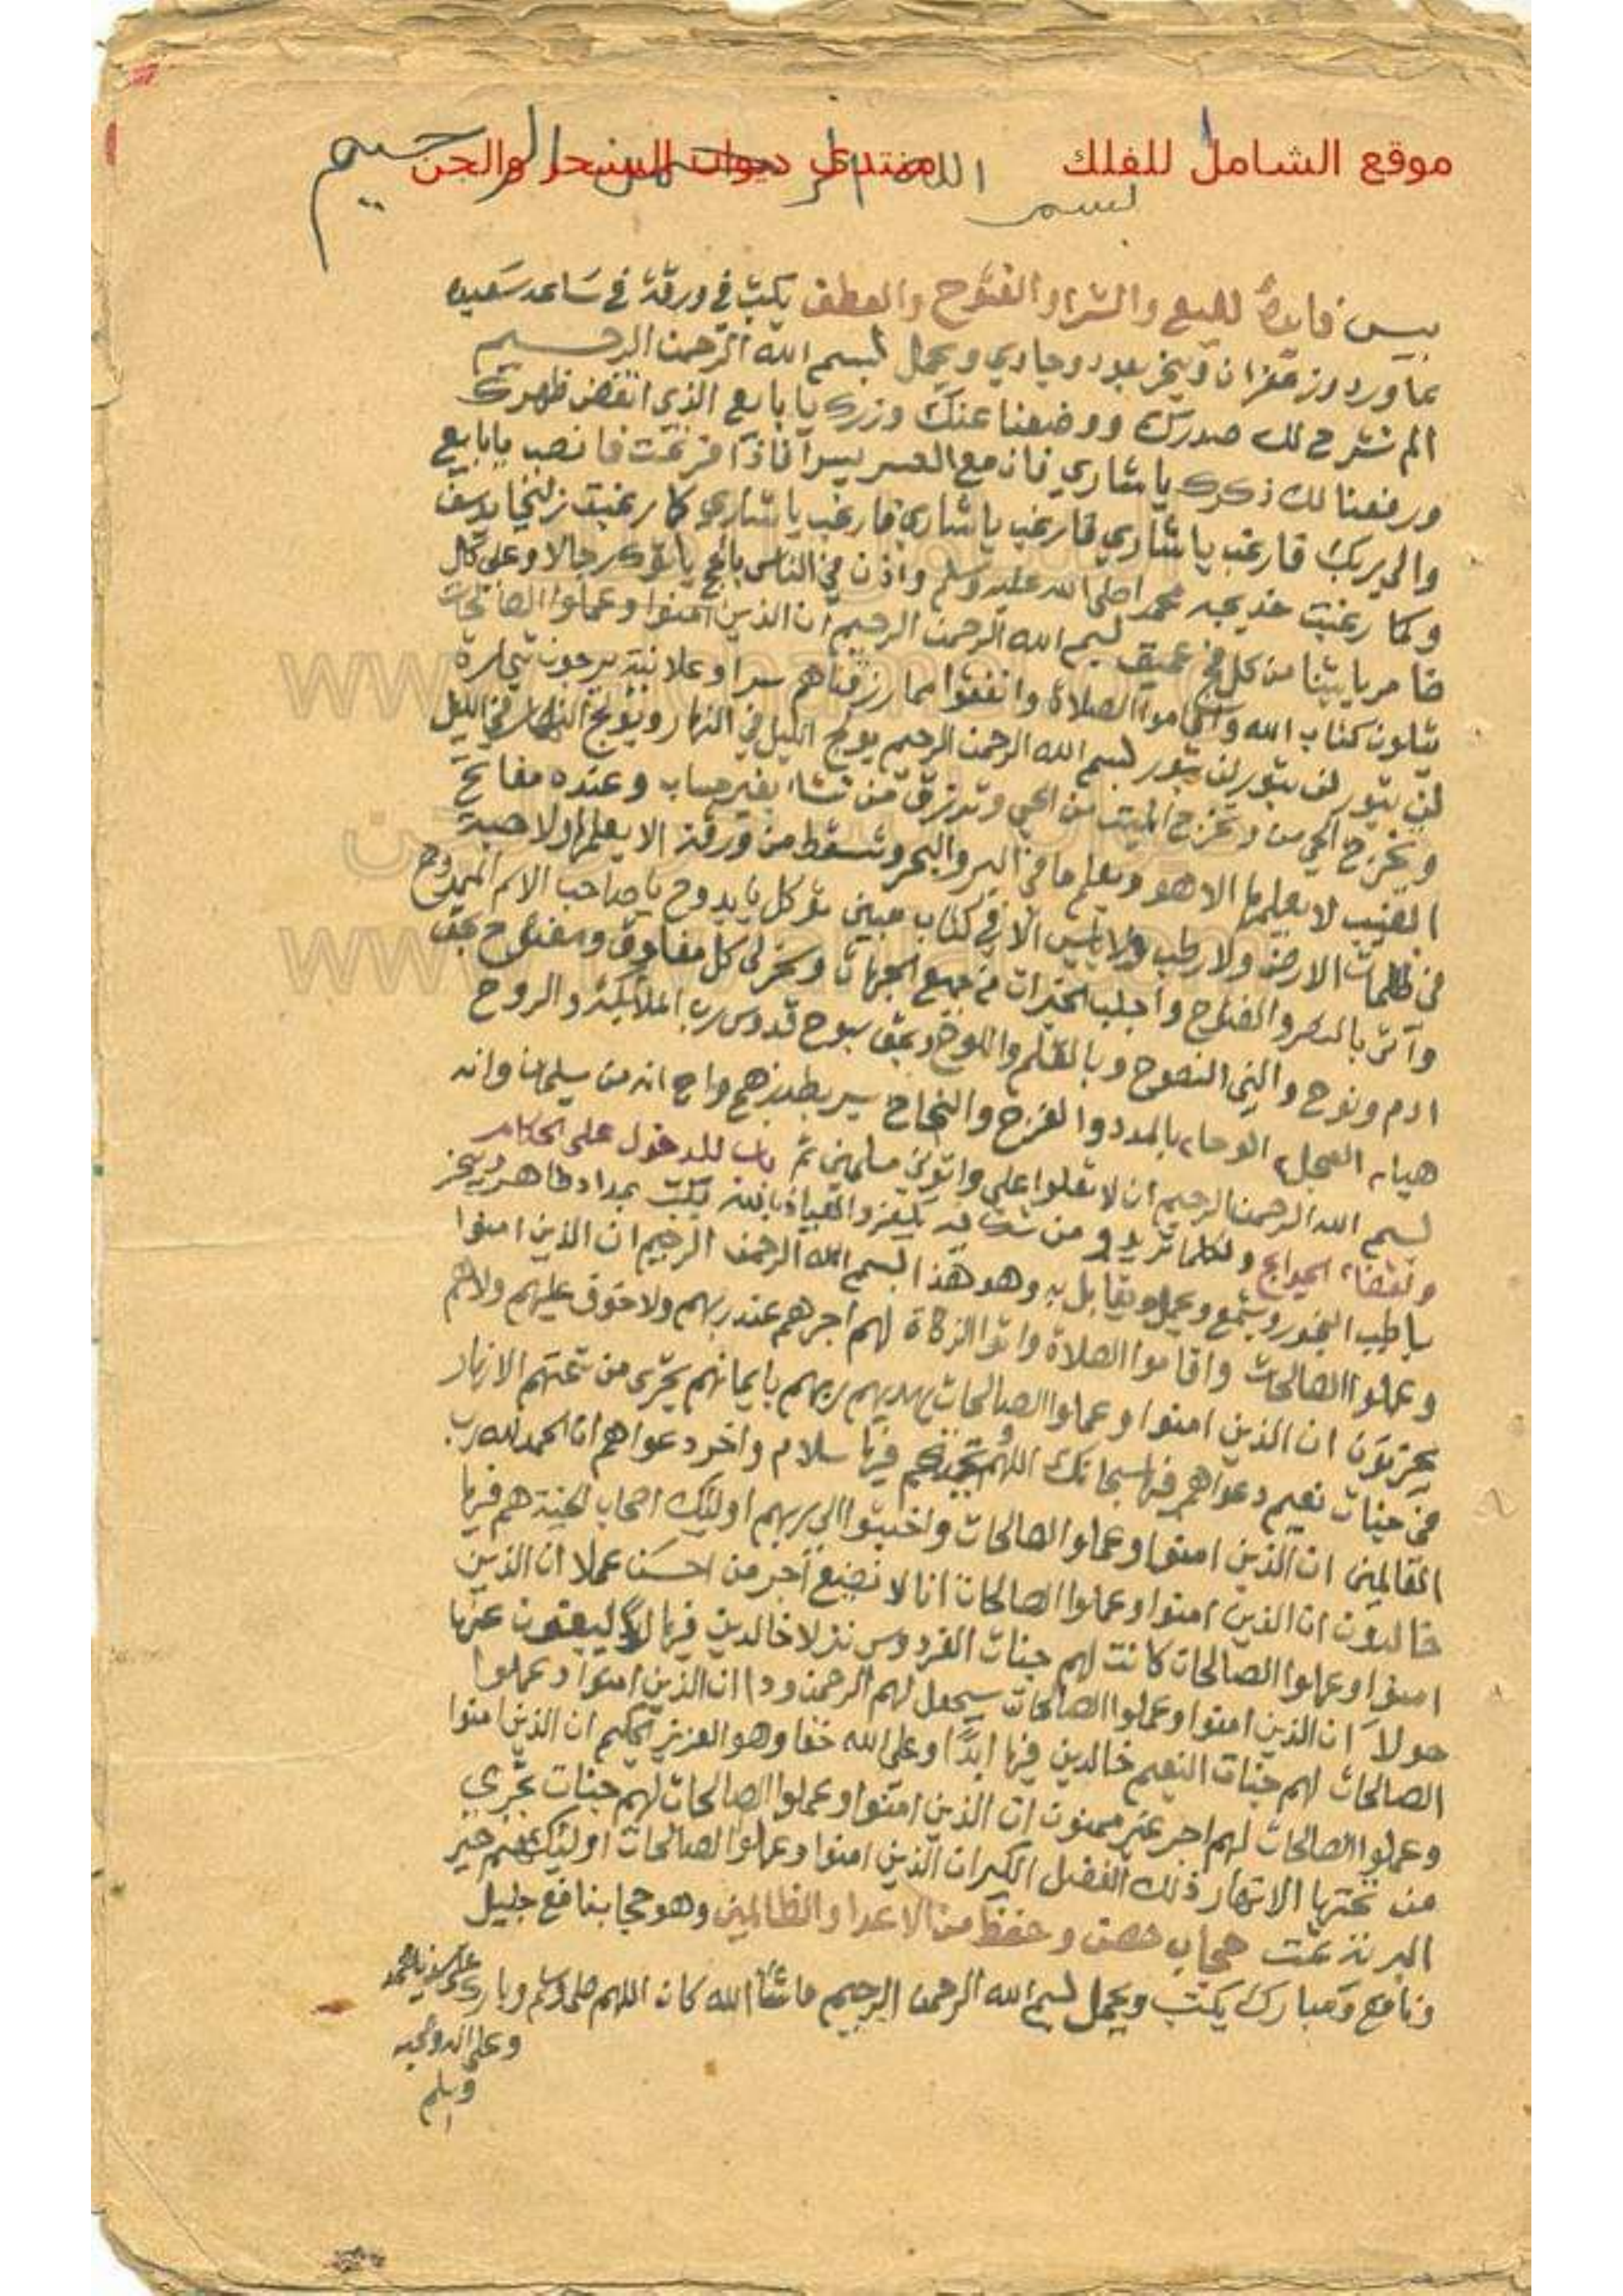 موقع الشامل للفلك منتدى ديوان السحر والجن
بسم الله الرحمن الرحيم
بيس فايدة للبيع والشرا والفتوح والعطف يكتب في ورقة في ساعه سعيده
بماورد وزعفران ويبخر بعود وجاوي ويحمل بسم الله الرحمن الرحيم
الم نشرح لك صدرك ووضعنا عنك وزرك يا بايع الذي انقض ظهرك
ورفعنا لك ذكرك يا شاري فان مع العسر يسرا فاذا فرغت فانصب يا بايع
والى ربك فارغب يا شاري فارغب يا شاري فارغب يا شاري كما رغبت زليخا يوسف
وكما رغبت خديجه محمد صلى الله عليه وسلم واذن في الناس بالحج ياتوك رجالا وعلى كل
ضامر ياتينا من كل فج عميق بسم الله الرحمن الرحيم ان الذين امنوا وعملوا الصالحات
يتلون كتاب الله واقاموا الصلاة وانفقوا مما رزقناهم سرا وعلانية يرجون تجارة
لن تبور لن تبور لن تبور بسم الله الرحمن الرحيم يولج الليل في النهار ويولج النهار في الليل
وتخرج الحي من وتخرج الميت من الحي وترزق من تشاء بغير حساب وعنده مفاتح
الغيب لا يعلمها الا هو ويعلم ما في البر والبحر وتسقط من ورقة الا يعلمها ولا حبة
في ظلمات الارض ولا رطب ولا يابس الا في كتاب مبين توكل يا بدوح يا صاحب الاسم الممدوح
وآتى بالنصر والفتوح واجلب الخيرات من جميع الجهات وسخر لي كل مغلوق ومفتوح بحق
ادم ونوح والنبي النصوح وبالقلم واللوح وبحق سبوح قدوس رب الملائكة والروح
هيا العجل الوحا بالمدد والفرج والنجاح بطد زهج واح انه من سليمان وانه
بسم الله الرحمن الرحيم ان لا تعلوا علي واتوني مسلمين تم باب للدخول على الحكام
ولقضاء الحوايج ولكلما تريد ومن شك فيه يكفر والعياذ بالله يكتب بمداد طاهر ويبخر
باطيب البخور ويشمع ويحمل ويقابل به وهو هذا بسم الله الرحمن الرحيم ان الذين امنوا
وعملوا الصالحات واقاموا الصلاة واتوا الزكاة لهم اجرهم عند ربهم ولا خوف عليهم ولا هم
يحزنون ان الذين امنوا وعملوا الصالحات يهديهم ربهم بايمانهم تجري من تحتهم الانهار
في جنات نعيم دعواهم فيها سبحانك اللهم وتحيتهم فيها سلام واخر دعواهم ان الحمد لله رب
العالمين ان الذين امنوا وعملوا الصالحات واخبتوا الى ربهم اوليك اصحاب الجنة هم فيها
خالدون ان الذين امنوا وعملوا الصالحات انا لا نضيع اجر من احسن عملا ان الذين
امنوا وعملوا الصالحات كانت لهم جنات الفردوس نزلا خالدين فيها لا يبغون عنها
حولا ان الذين امنوا وعملوا الصالحات سيجعل لهم الرحمن ودا ان الذين امنوا وعملوا
الصالحات لهم جنات النعيم خالدين فيها ابدا وعلى الله حقا وهو العزيز الحكيم ان الذين امنوا
وعملوا الصالحات لهم اجر غير ممنون ان الذين امنوا وعملوا الصالحات لهم جنات تجري
من تحتها الانهار ذلك الفضل الكبير ان الذين امنوا وعملوا الصالحات اوليك هم خير
البرية تمت حجاب حصن وحفظ من الاعدا والظالمين وهو حجاب نافع جليل
ونافع ومبارك يكتب ويحمل بسم الله الرحمن الرحيم ما شاء الله كان اللهم صلي وسلم وبارك على سيدنا محمد
وعلى اله وصحبه
وسلم